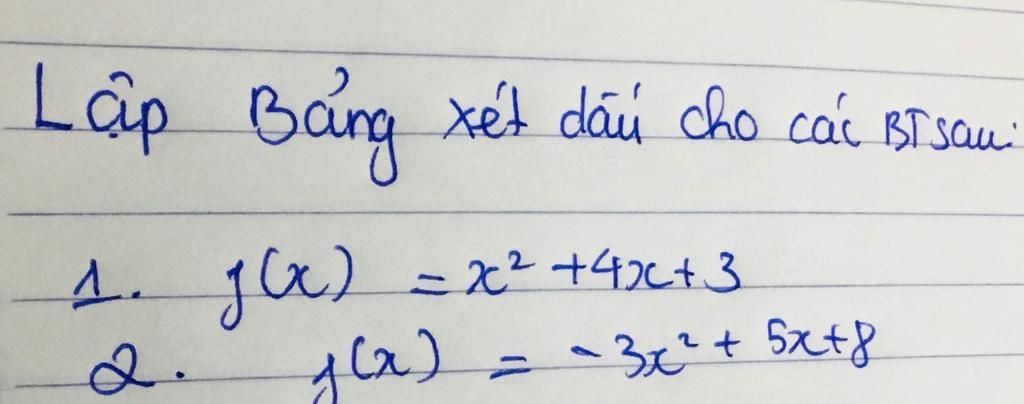 Lập Bảng xét dấu cho các BT sau:
1. f(x) = x² + 4x + 3
2. f(x) = -3x² + 5x + 8